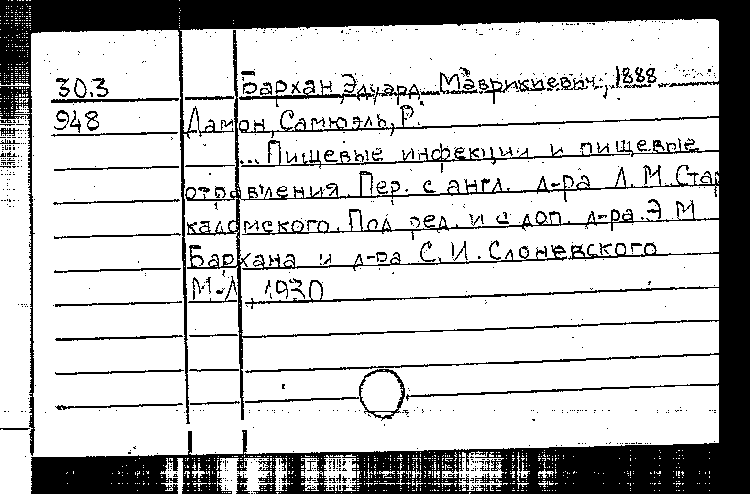 30.3 Бархан, Эдуард Маврикиевич, 1888
948 Дамон, Самюэль, Р.
... Пищевые инфекции и пищевые
отравления. Пер. с англ. д-ра Л. М. Стар
кадомского. Под ред. и с доп. д-ра Э. М.
Бархана и д-ра С. И. Слоневского
М-Л, 1930